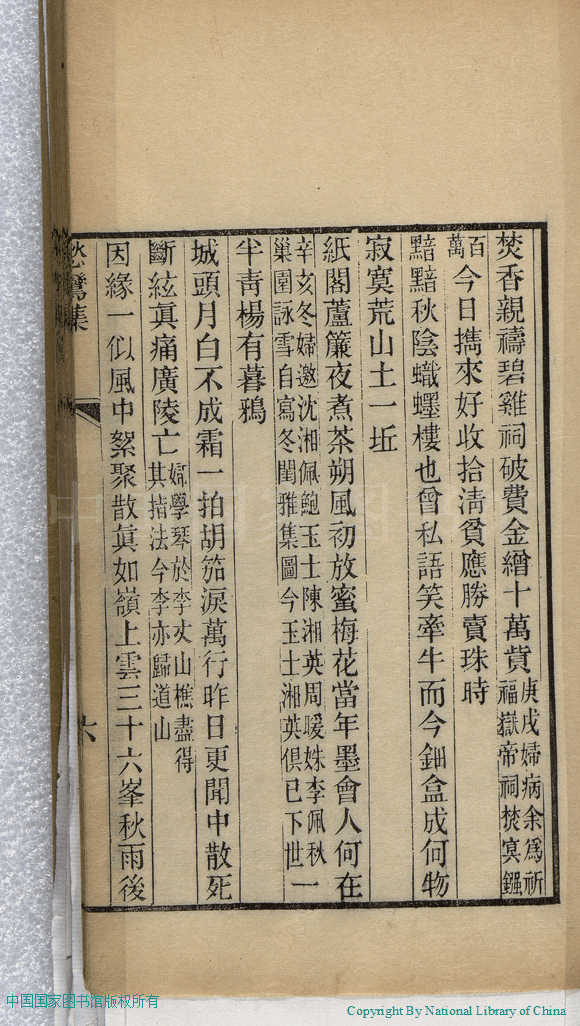 焚香親禱碧雞祠破費金繒十萬貲庚戌婦病余爲祈福嶽帝祠焚冥鏹
百萬今日攜來好收拾淸貧應勝賣珠時
黯黯秋陰蠟蟶樓也曾私語笑牽牛而今鈿盒成何物
寂寞荒山土一坵
紙閣蘆簾夜煮茶朔風初放蜜梅花當年墨會人何在
辛亥冬婦邀沈湘佩鮑玉士陳湘英周暖姝李佩秋巢園詠雪自寫冬閨雅集圖今玉士湘英俱已下世一
半靑楊有暮鴉
城頭月白不成霜一拍胡笳淚萬行昨日更聞中散死
斷絃眞痛廣陵亡嫃學琴於李𠀋山樵盡得其揞法今李亦歸道山
因緣一似風中絮聚散眞如嶺上雲三十六峯秋雨後
愁鸞集
六
中国国家图书馆版权所有
Copyright By National Library of China